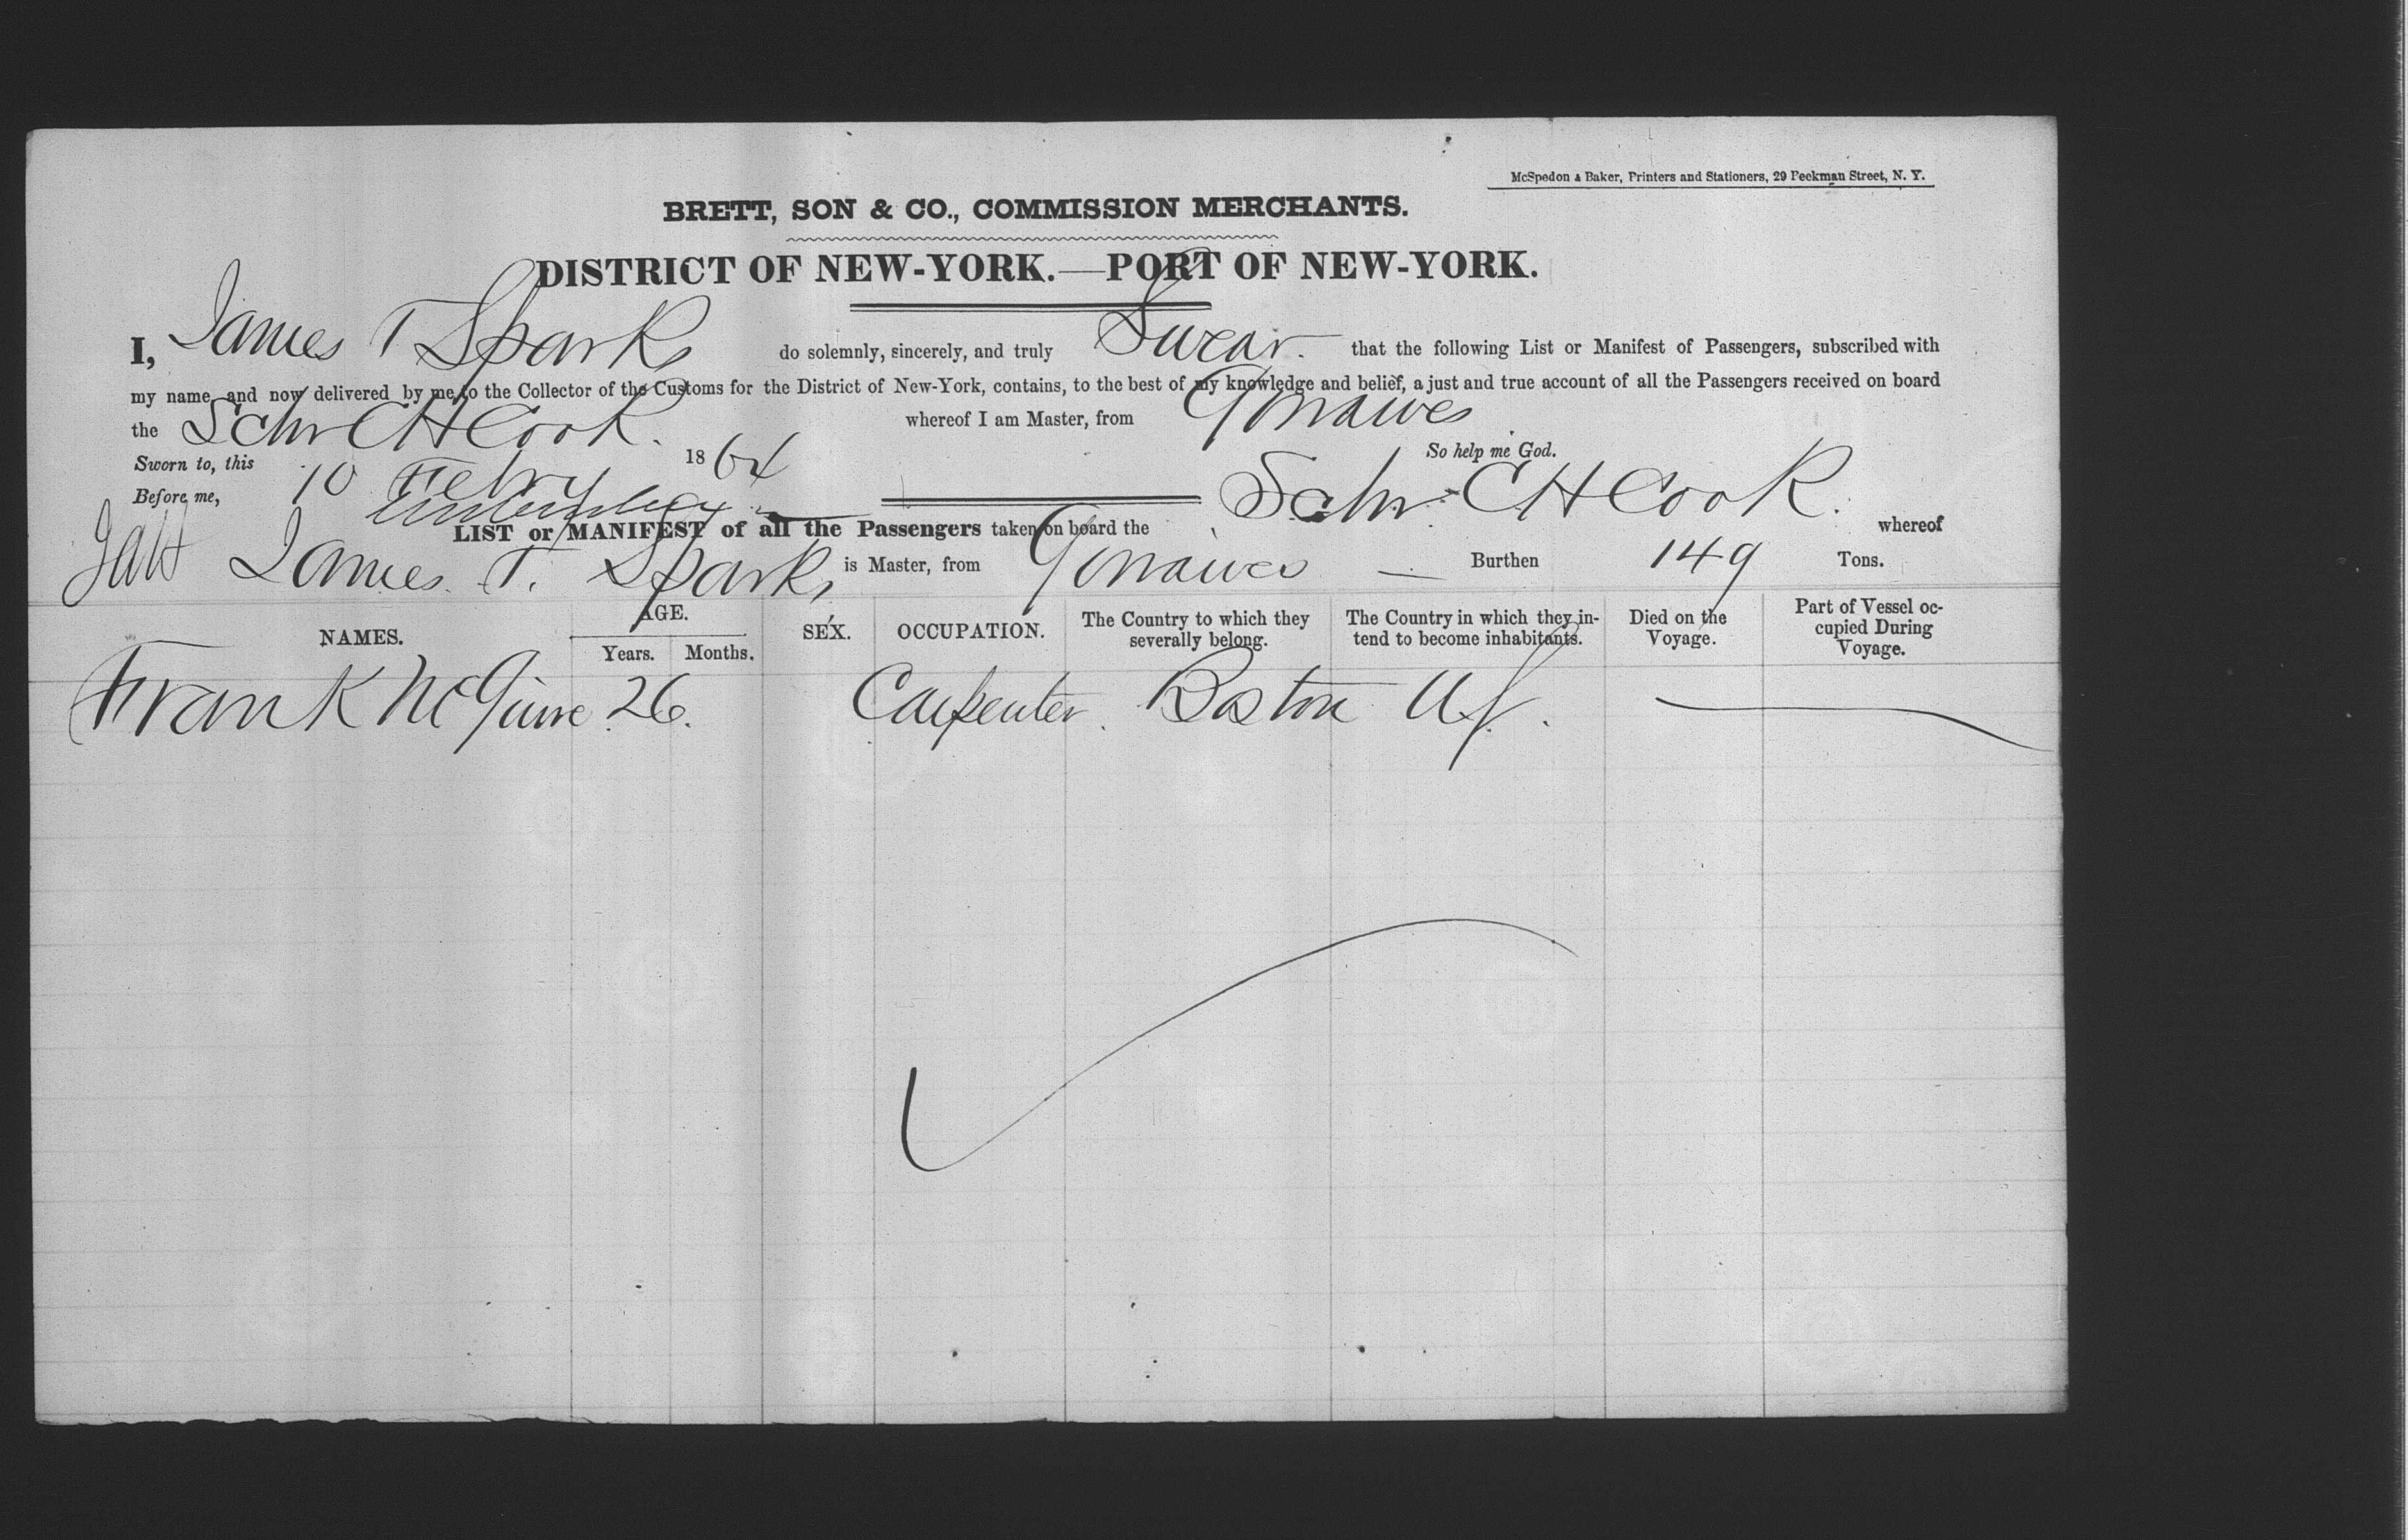 McSpedon & Baker, Printers and Stationers, 29 Beekman Street, N. Y.
BRETT, SON & CO., COMMISSION MERCHANTS.
DISTRICT OF NEW-YORK.—PORT OF NEW-YORK.
I, James T Sparks do solemnly, sincerely, and truly Swear. that the following List or Manifest of Passengers, subscribed with
my name, and now delivered by me, to the Collector of the Customs for the District of New-York, contains, to the best of my knowledge and belief, a just and true account of all the Passengers received on board
the Schr C H Cook. whereof I am Master, from Gonaives
Sworn to, this 10 Febry 1864 So help me God.
Before me,
LIST or MANIFEST of all the Passengers taken on board the Schr C H Cook. whereof
James T. Sparks is Master, from Gonaives — Burthen 149 Tons.
NAMES. AGE. Years. Months. SEX. OCCUPATION. The Country to which they severally belong. The Country in which they intend to become inhabitants. Died on the Voyage. Part of Vessel occupied During Voyage.
Frank McGuire 26. Carpenter. Boston US.